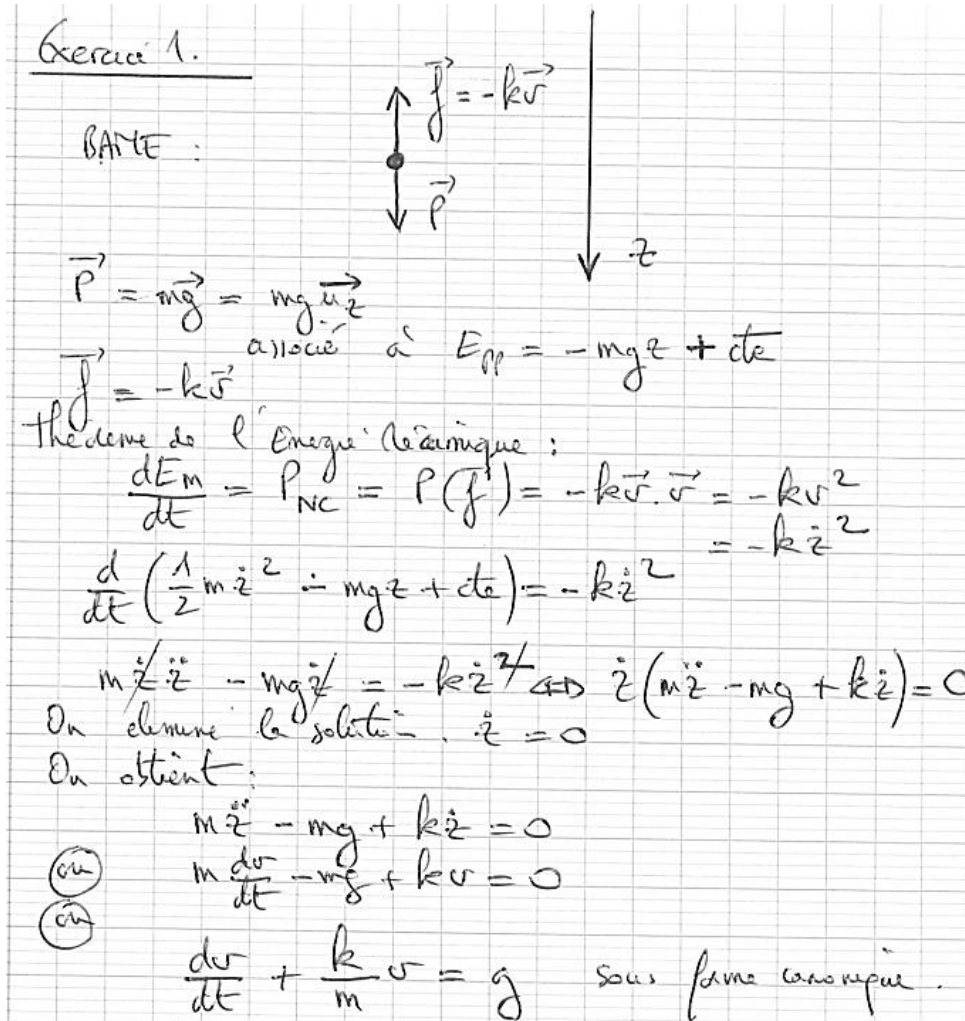 Exercice 1.
f⃗ = -kv⃗
BAME :
P⃗
z
P⃗ = mg⃗ = mg u⃗z
associé à Epp = -mgz + cte
f⃗ = -kv⃗
théorème de l'Energie Mécanique :
dEm/dt = P_NC = P(f⃗) = -kv⃗.v⃗ = -kv²
= -kż²
d/dt (1/2 mż² - mgz + cte) = -kż²
mżz̈ - mgż = -kż² ⇔ ż(mz̈ - mg + kż) = 0
On élimine la solution ż = 0
On obtient :
mz̈ - mg + kż = 0
ou m dv/dt - mg + kv = 0
ou
dv/dt + k/m v = g sous forme canonique.